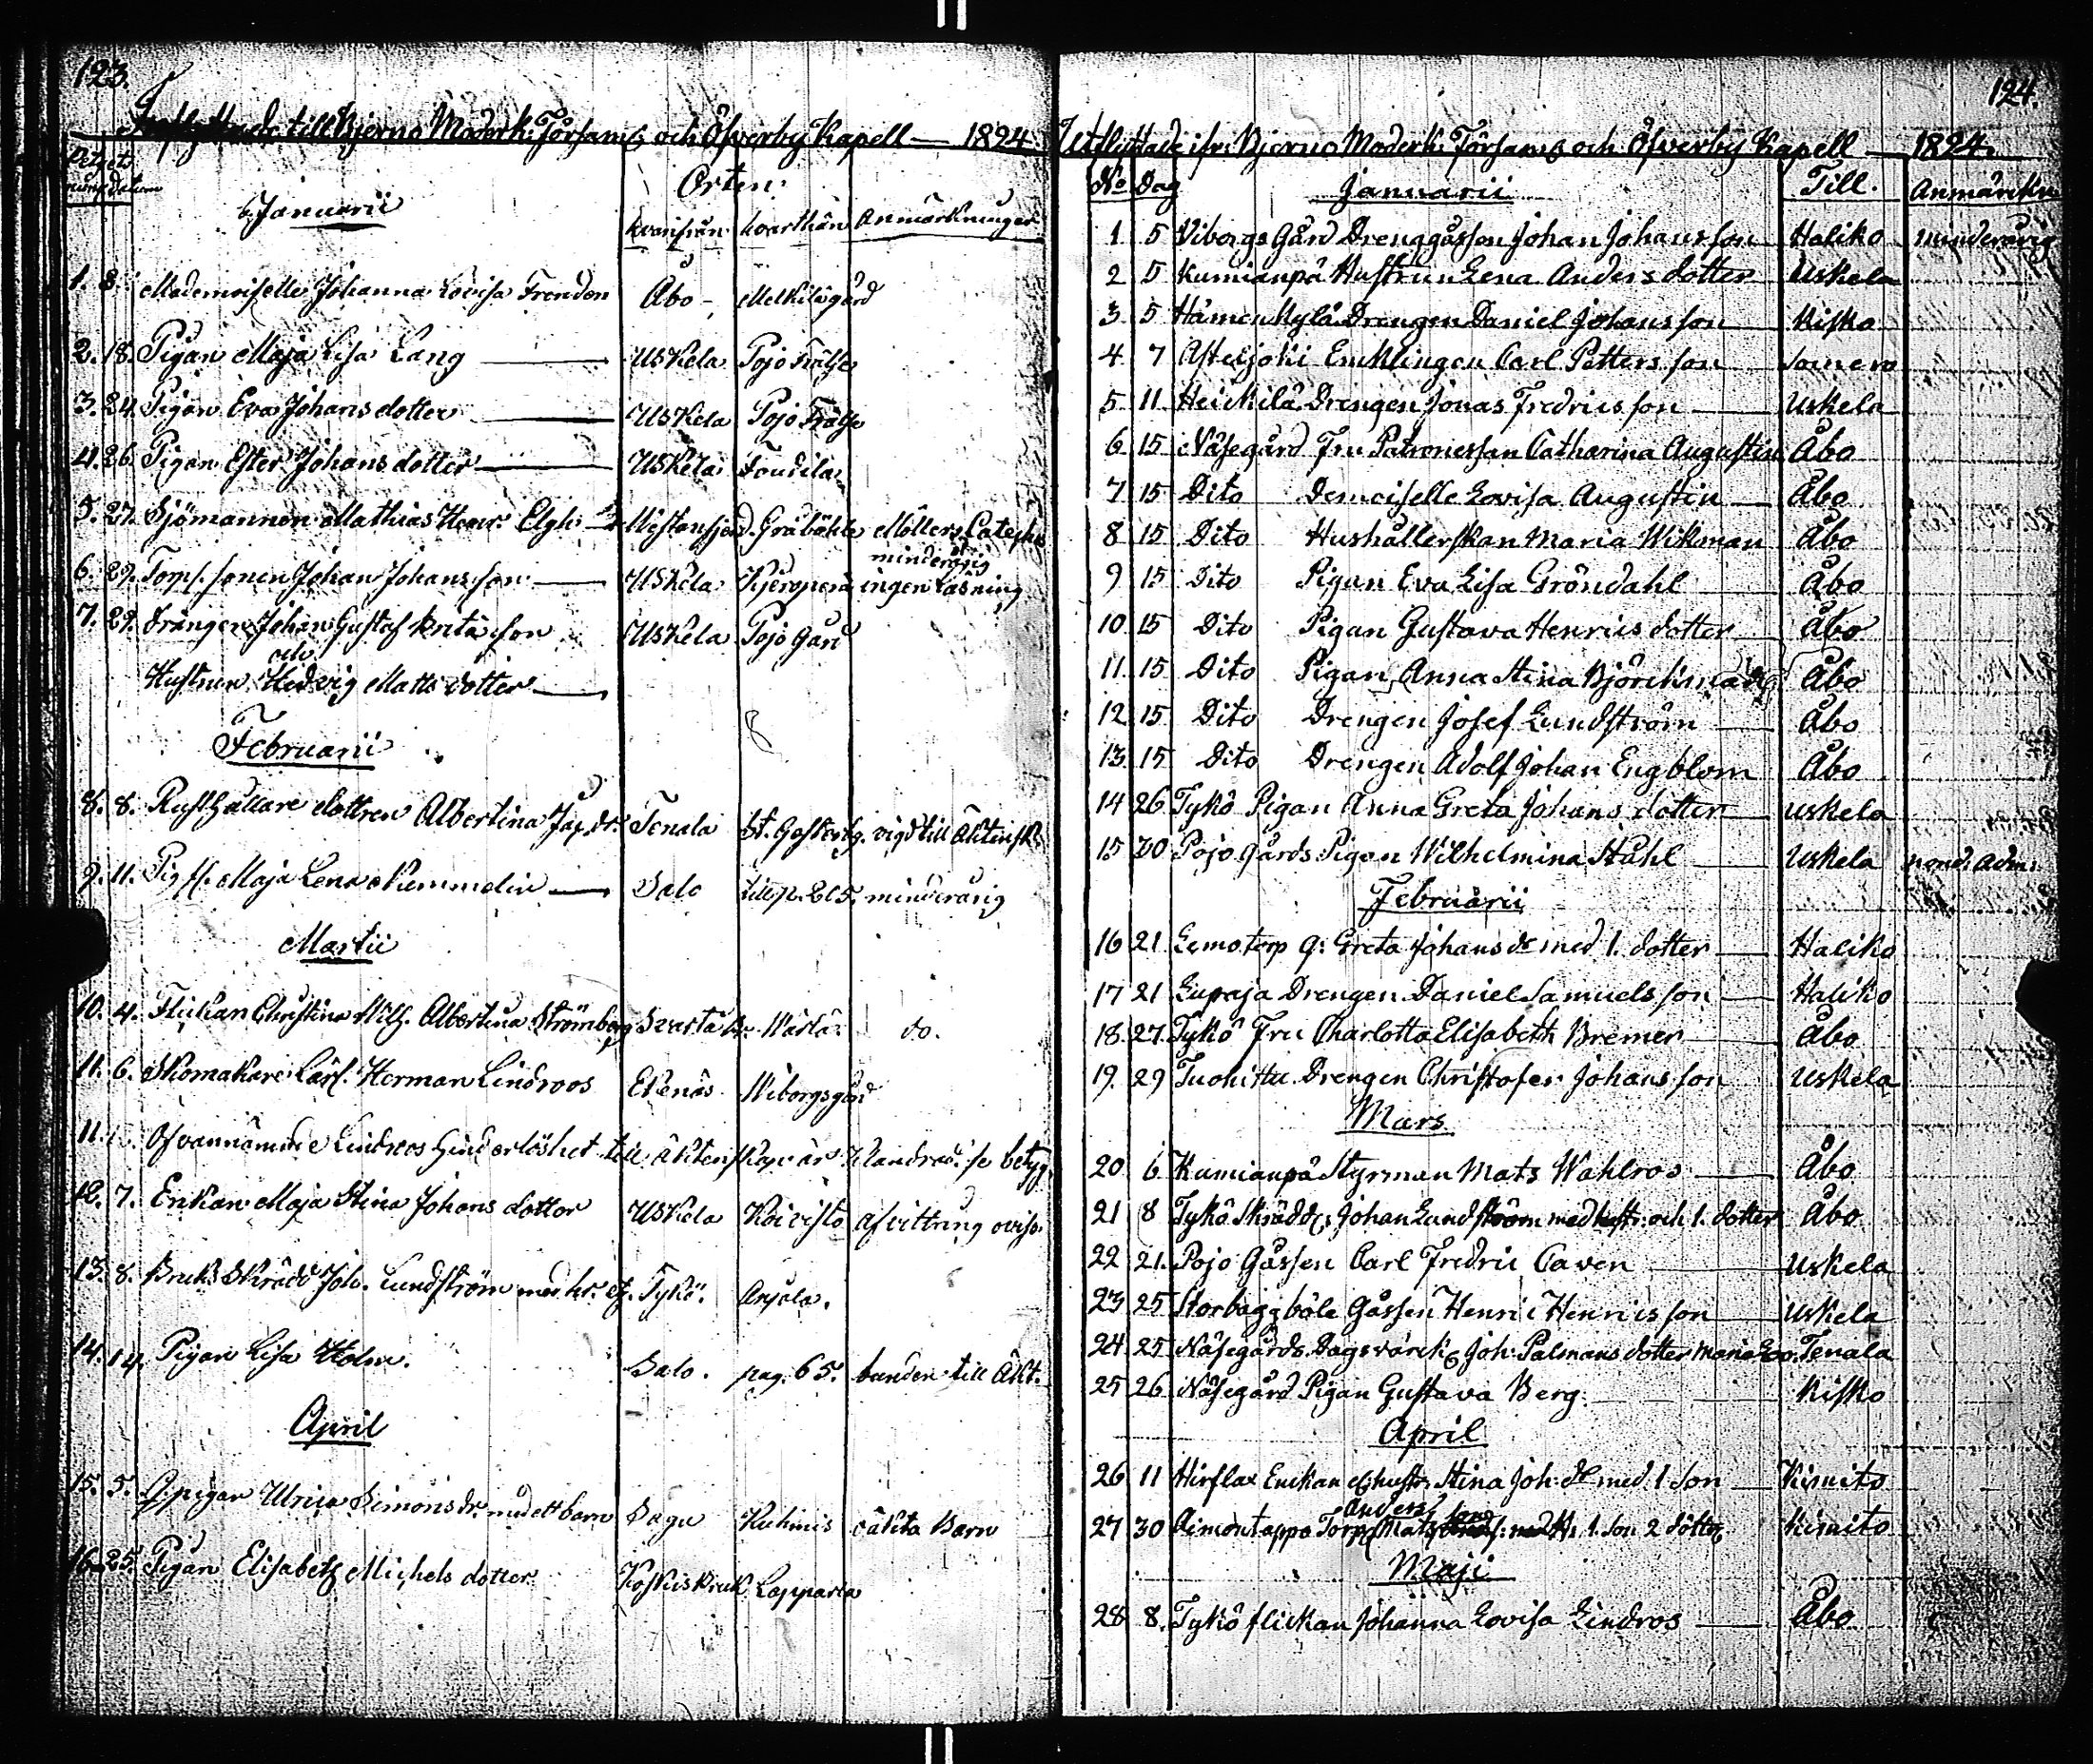 123.
Inflyttade till Bjerno Moderk: Församl. och Öfverby Kapell — 1824
Betyg datum
Januarii Orten
hvarifrån hvarthän Anmärkningar
1. 8. Mademoiselle Johanna Lovisa Trendon Åbo - Melkilägård
2. 18. Pigan Maja Lisa Lang — Uskela Pojo Frälse
3. 24. Pigan Eva Johansdotter — Uskela Pojo Frälse
4. 26. Pigan Ester Johans dotter — Uskela Toudila
5. 27. Sjömannen Mathias Henr: Elgh — Gråböhle Möllers Cateches
6. 29. Torp. sonen Johan Johansson — Uskela Kjeropera minderårig ingen läsning
7. 29. Drängen Johan Gustaf son Uskela Pojo Gård
och
Hustrun Hedvig Matts dotter —
Februarii
8. 8. Rusthållare dottren Albertina Jac. dr. Tenala vigd till äktensk.
9. 11. Pig fl. Maja Lena Nummelin — Salo minderårig
Martii
10. 4. Flickan Christina Wilh. Albertina Strömberg Svartå Br. Wärtä. do.
11. 6. Skomakare Lärl. Herman Lindroos Ekenäs Wiborgsgård
11. Ofvannämnde Lindroos hinderlöshet till äktenskap är se betyg.
12. 7. Enkan Maja Stina Johans dotter Uskela Koivisto afvittring oviss.
13. 8. Bruks Skrädd. Joh. Lundström med hr. Tykö. Anjala.
14. 14. Pigan Lisa Holm. Salo. pag. 65. bunden till Äkt.
April
15. 5. Qpigan Ulrica Simonsdr. med ett barn Sagu Kuhmis oäkta Barn
16. 25. Pigan Elisabeth Michels dotter Koskis Bruk Lapparla
124.
Utflyttade ifr: Bjerno Moderk: Församl. och Öfverby Kapell — 1824.
No Dag Januarii Till. Anmärkn
1 5 Viborgs Gård Dreng gåsson Johan Johansson Haliko minderårig
2 5 Kumianpä Hustrun Lena Anders dotter Uskela
3 5 Hämenkylä Drengen Daniel Johansson Kisko
4 7 Asteljoki Enklingen Carl Petters son Somero
5 11 Heickilä Drengen Jonas Fredricsson — Uskela
6 15 Näsegård Fru Patronessan Catharina Augustin Åbo
7 15 Dito Demoiselle Lovisa Augustin — Åbo
8 15 Dito Hushållerskan Maria Wikman Åbo
9 15 Dito Pigan Eva Lisa Gröndahl Åbo
10 15 Dito Pigan Gustava Henrics dotter Åbo
11 15 Dito Pigan Anna Stina Åbo
12 15 Dito Drengen Josef Lundström — Åbo
13 15 Dito Drengen Adolf Johan Engblom Åbo
14 26 Tykö Pigan Anna Greta Johans dotter Uskela
15 20 Pojo gårds Pigan Wilhelmina Ståhl — Uskela nond: adm:
Februarii
16 21 Lemo torp q: Greta Johans dr med 1. dotter — Haliko
17 21 Lupaja Drengen Daniel Samuels son — Haliko
18 27 Tykö Fru Charlotta Elisabeth Bremer — Åbo
19. 29 Tuohittu Drengen Christofer Johansson Uskela
Mars
20 6 Kumianpä Styrman Mats Wahlros — Åbo
21 8 Tykö Skrädd. Johan Lundström med hustr: och 1. dotter Åbo
22 21. Pojo Gåssen Carl Fredric Caven — Uskela
23 25 Storbaggböle Gåssen Henric Henricsson Uskela
24 25 Näsegårds Dagsvärck. Joh: Palmans dotter Maria Tenala
25 26 Näsegård Pigan Gustava Berg. — Kisko
April
26 11 Hirflax Enckan Stina Joh: dr med 1 Son — Kimito
27 30 Aimontappo Torp. Mats Anders son 1. son 2 döttr. Kimito
Maji
28 8. Tykö flickan Johanna Lovisa Lindros — Åbo